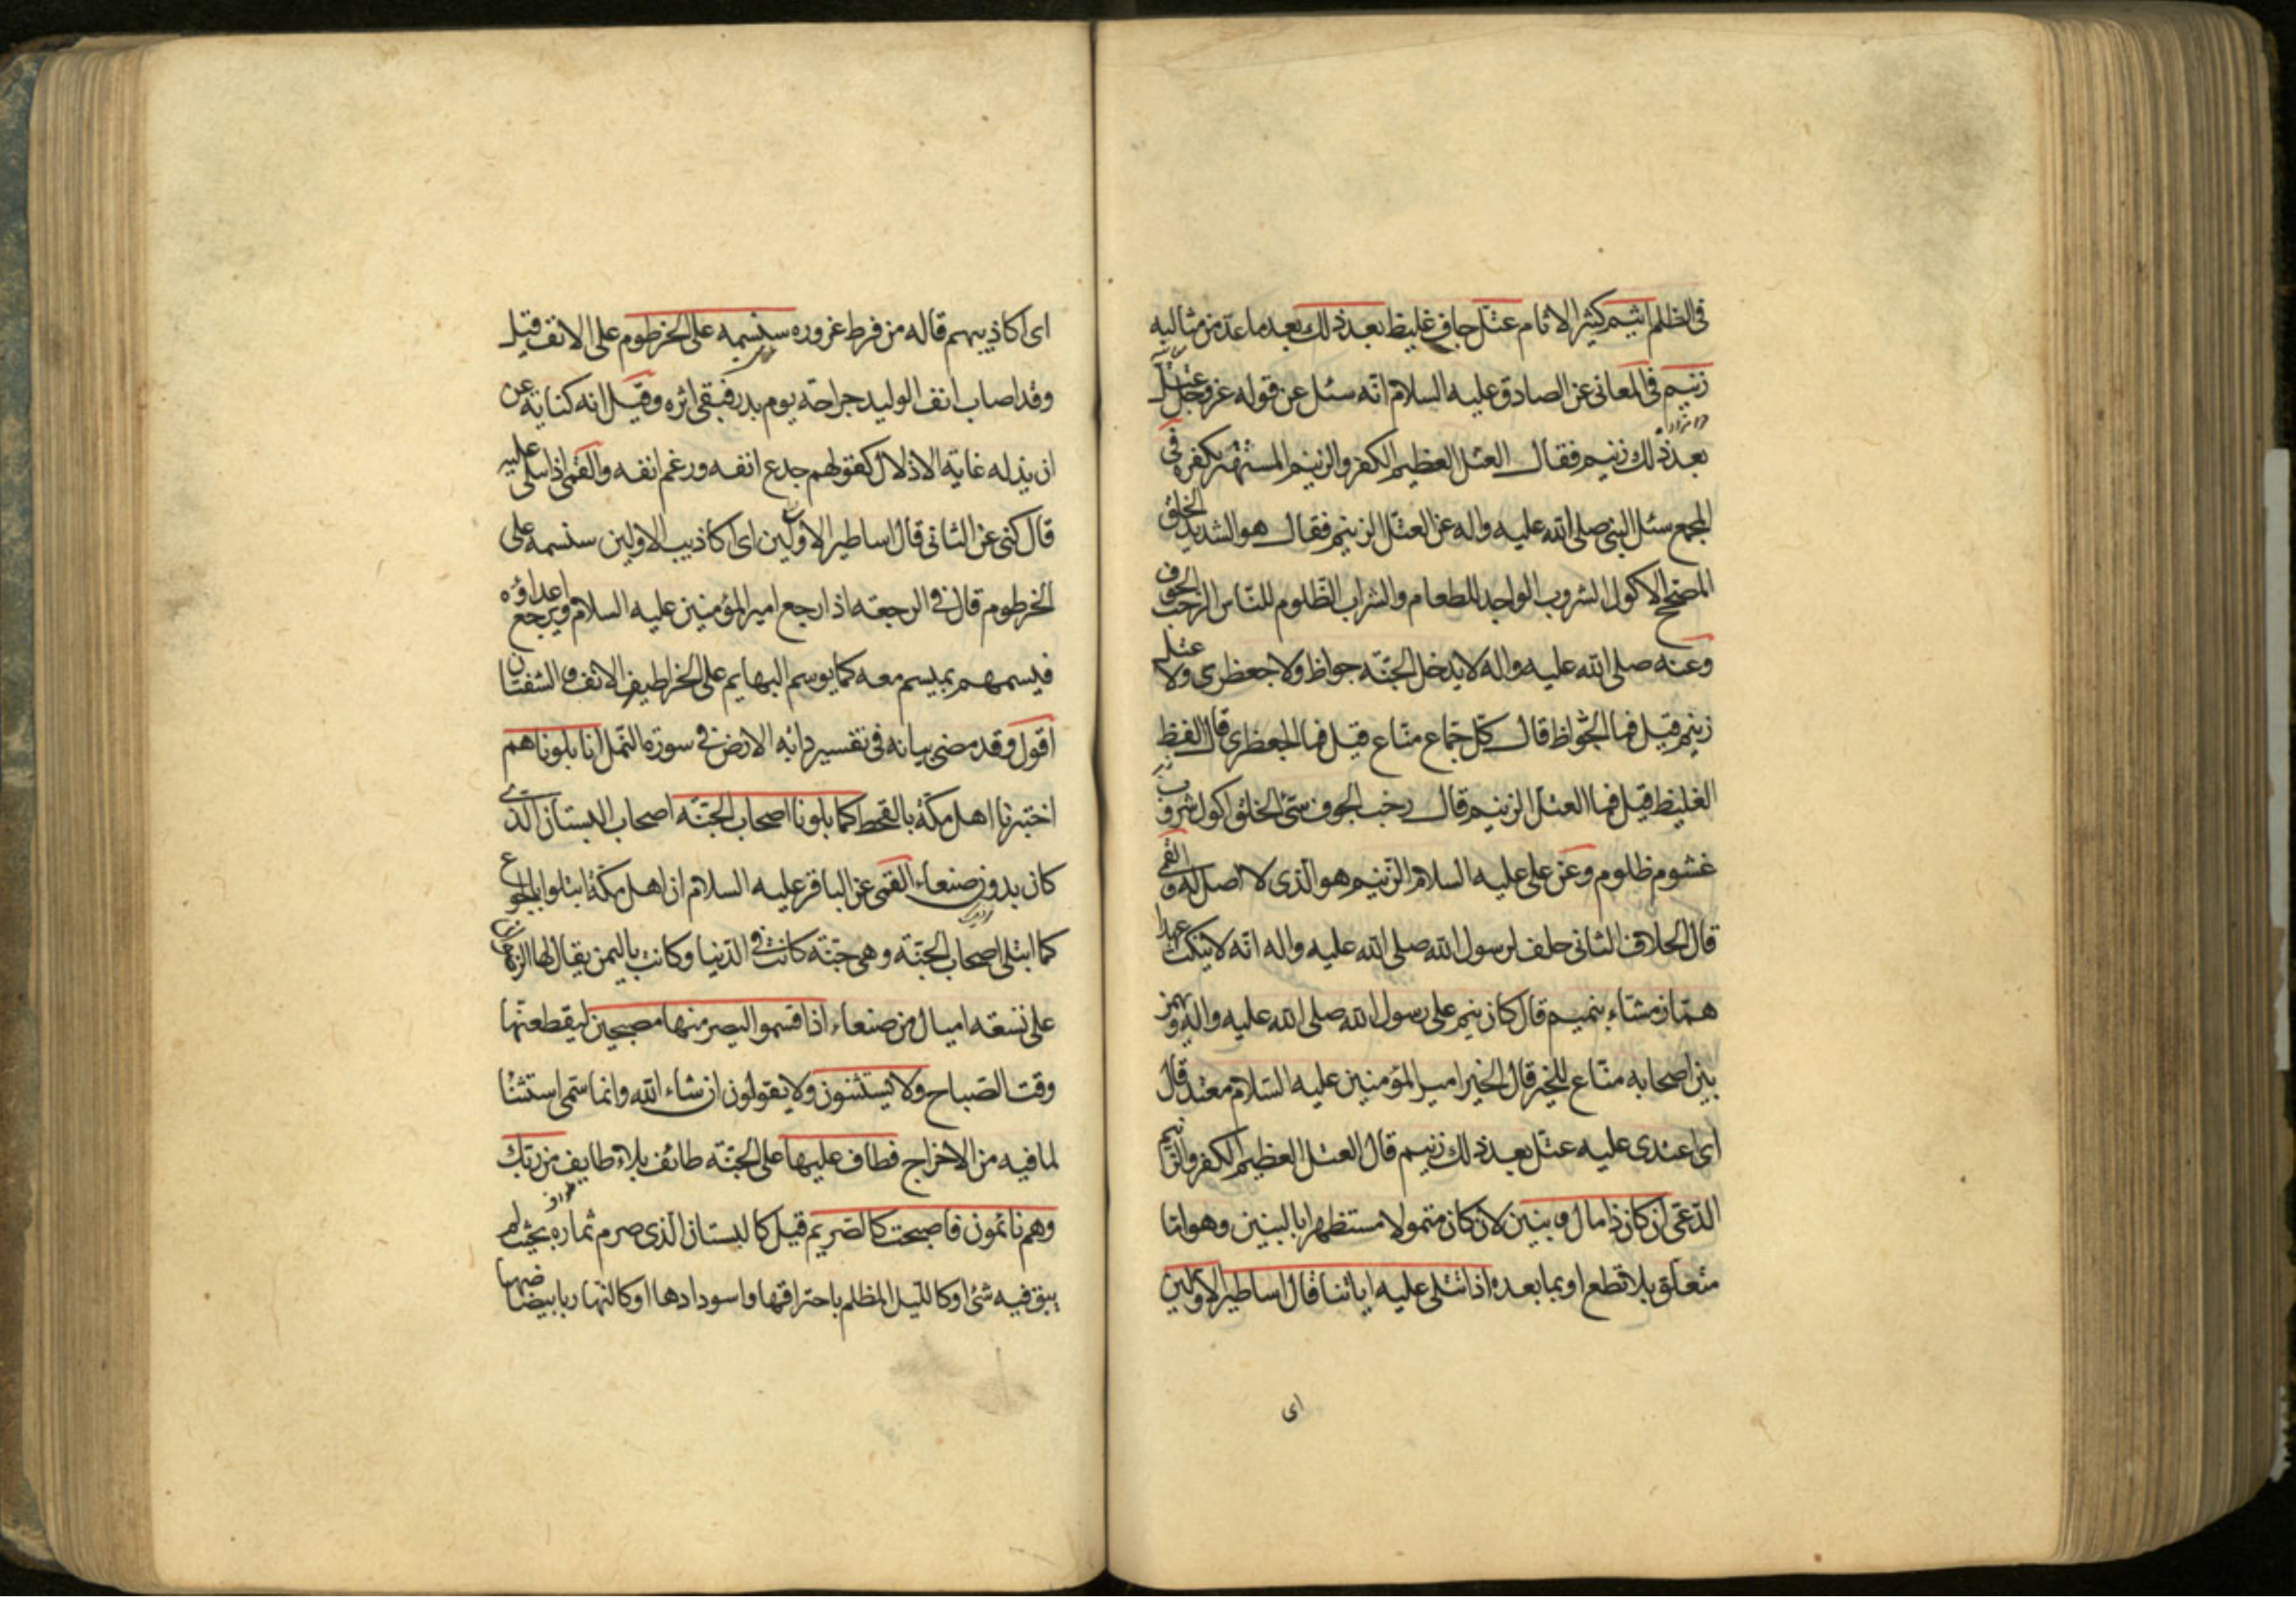 فی الظلم اثیم کثیر الاثام عتل جاف غلیظ بعد ذلک بعد ما عد من مثالبه
زنیم فی المعانی عن الصادق علیه السلام انه سئل عن قوله عز وجل عتل
بعد ذلک زنیم فقال العتل العظیم الکفر والزنیم المستهتر بکفره فی
المجمع سئل النبی صلی الله علیه واله عن العتل الزنیم فقال هو الشدید الخلق
المصحح الاکول الشروب الواجد للطعام والشراب الظلوم للناس الرحب الجوف
وعنه صلی الله علیه واله لا یدخل الجنة جواظ ولا جعظری ولا عتل
زنیم قیل فما الجواظ قال کل جماع مناع قیل فما الجعظری قال الفظ
الغلیظ قیل فما العتل الزنیم قال رحب الجوف سیئ الخلق اکول شروب
غشوم ظلوم وعن علی علیه السلام الزنیم هو الذی لا اصل له والقمی
قال الحلاف الثانی حلف لرسول الله صلی الله علیه واله انه لا ینکث عهدا
هماز مشاء بنمیم قال کان ینم علی رسول الله صلی الله علیه واله ویهمز
بین اصحابه مناع للخیر قال الخیر امیر المؤمنین علیه السلام معتد قال
ای اعتدی علیه عتل بعد ذلک زنیم قال العتل العظیم الکفر والزنیم
الدعی ان کان ذا مال وبنین لان کان متمولا مستظهرا بالبنین وهو اما
متعلق بلا تطع او بما بعده اذا تتلی علیه ایاتنا قال اساطیر الاولین
ای
ای اکاذیبهم قاله من فرط غروره سنسمه علی الخرطوم علی الانف قیل
وقد اصاب انف الولید جراحة یوم بدر فبقی اثره وقیل انه کنایة عن
ان یذله غایة الاذلال کقولهم جدع انفه ورغم انفه والقمی اذا تتلی علیه
قال کنی عن الثانی قال اساطیر الاولین ای اکاذیب الاولین سنسمه علی
الخرطوم قال فی الرجعة اذا رجع امیر المؤمنین علیه السلام ویرجع اعداؤه
فیسمهم بمیسم معه کما یوسم البهایم علی الخراطیم الانف والشفتان
اقول وقد مضی بیانه فی تفسیر دابة الارض فی سورة النمل انا بلوناهم
اختبرنا اهل مکة بالقحط کما بلونا اصحاب الجنة اصحاب البستان الذی
کان بدون صنعاء القمی عن الباقر علیه السلام ان اهل مکة ابتلوا بالجوع
کما ابتلی اصحاب الجنة وهی جنة کانت فی الدنیا وکانت بالیمن یقال لها
علی تسعة امیال من صنعاء اذ اقسموا لیصرمنها مصبحین لیقطعنها
وقت الصباح ولا یستثنون ولا یقولون ان شاء الله وانما سمی استثنا
لما فیه من الاخراج فطاف علیها علی الجنة طائف بلاء طایف من ربک
وهم نائمون فاصبحت کالصریم قیل کالبستان الذی صرم ثماره بحیث لم
یبق فیه شئ او کاللیل المظلم باحتراقها واسودادها او کالنهار بابیضاضها